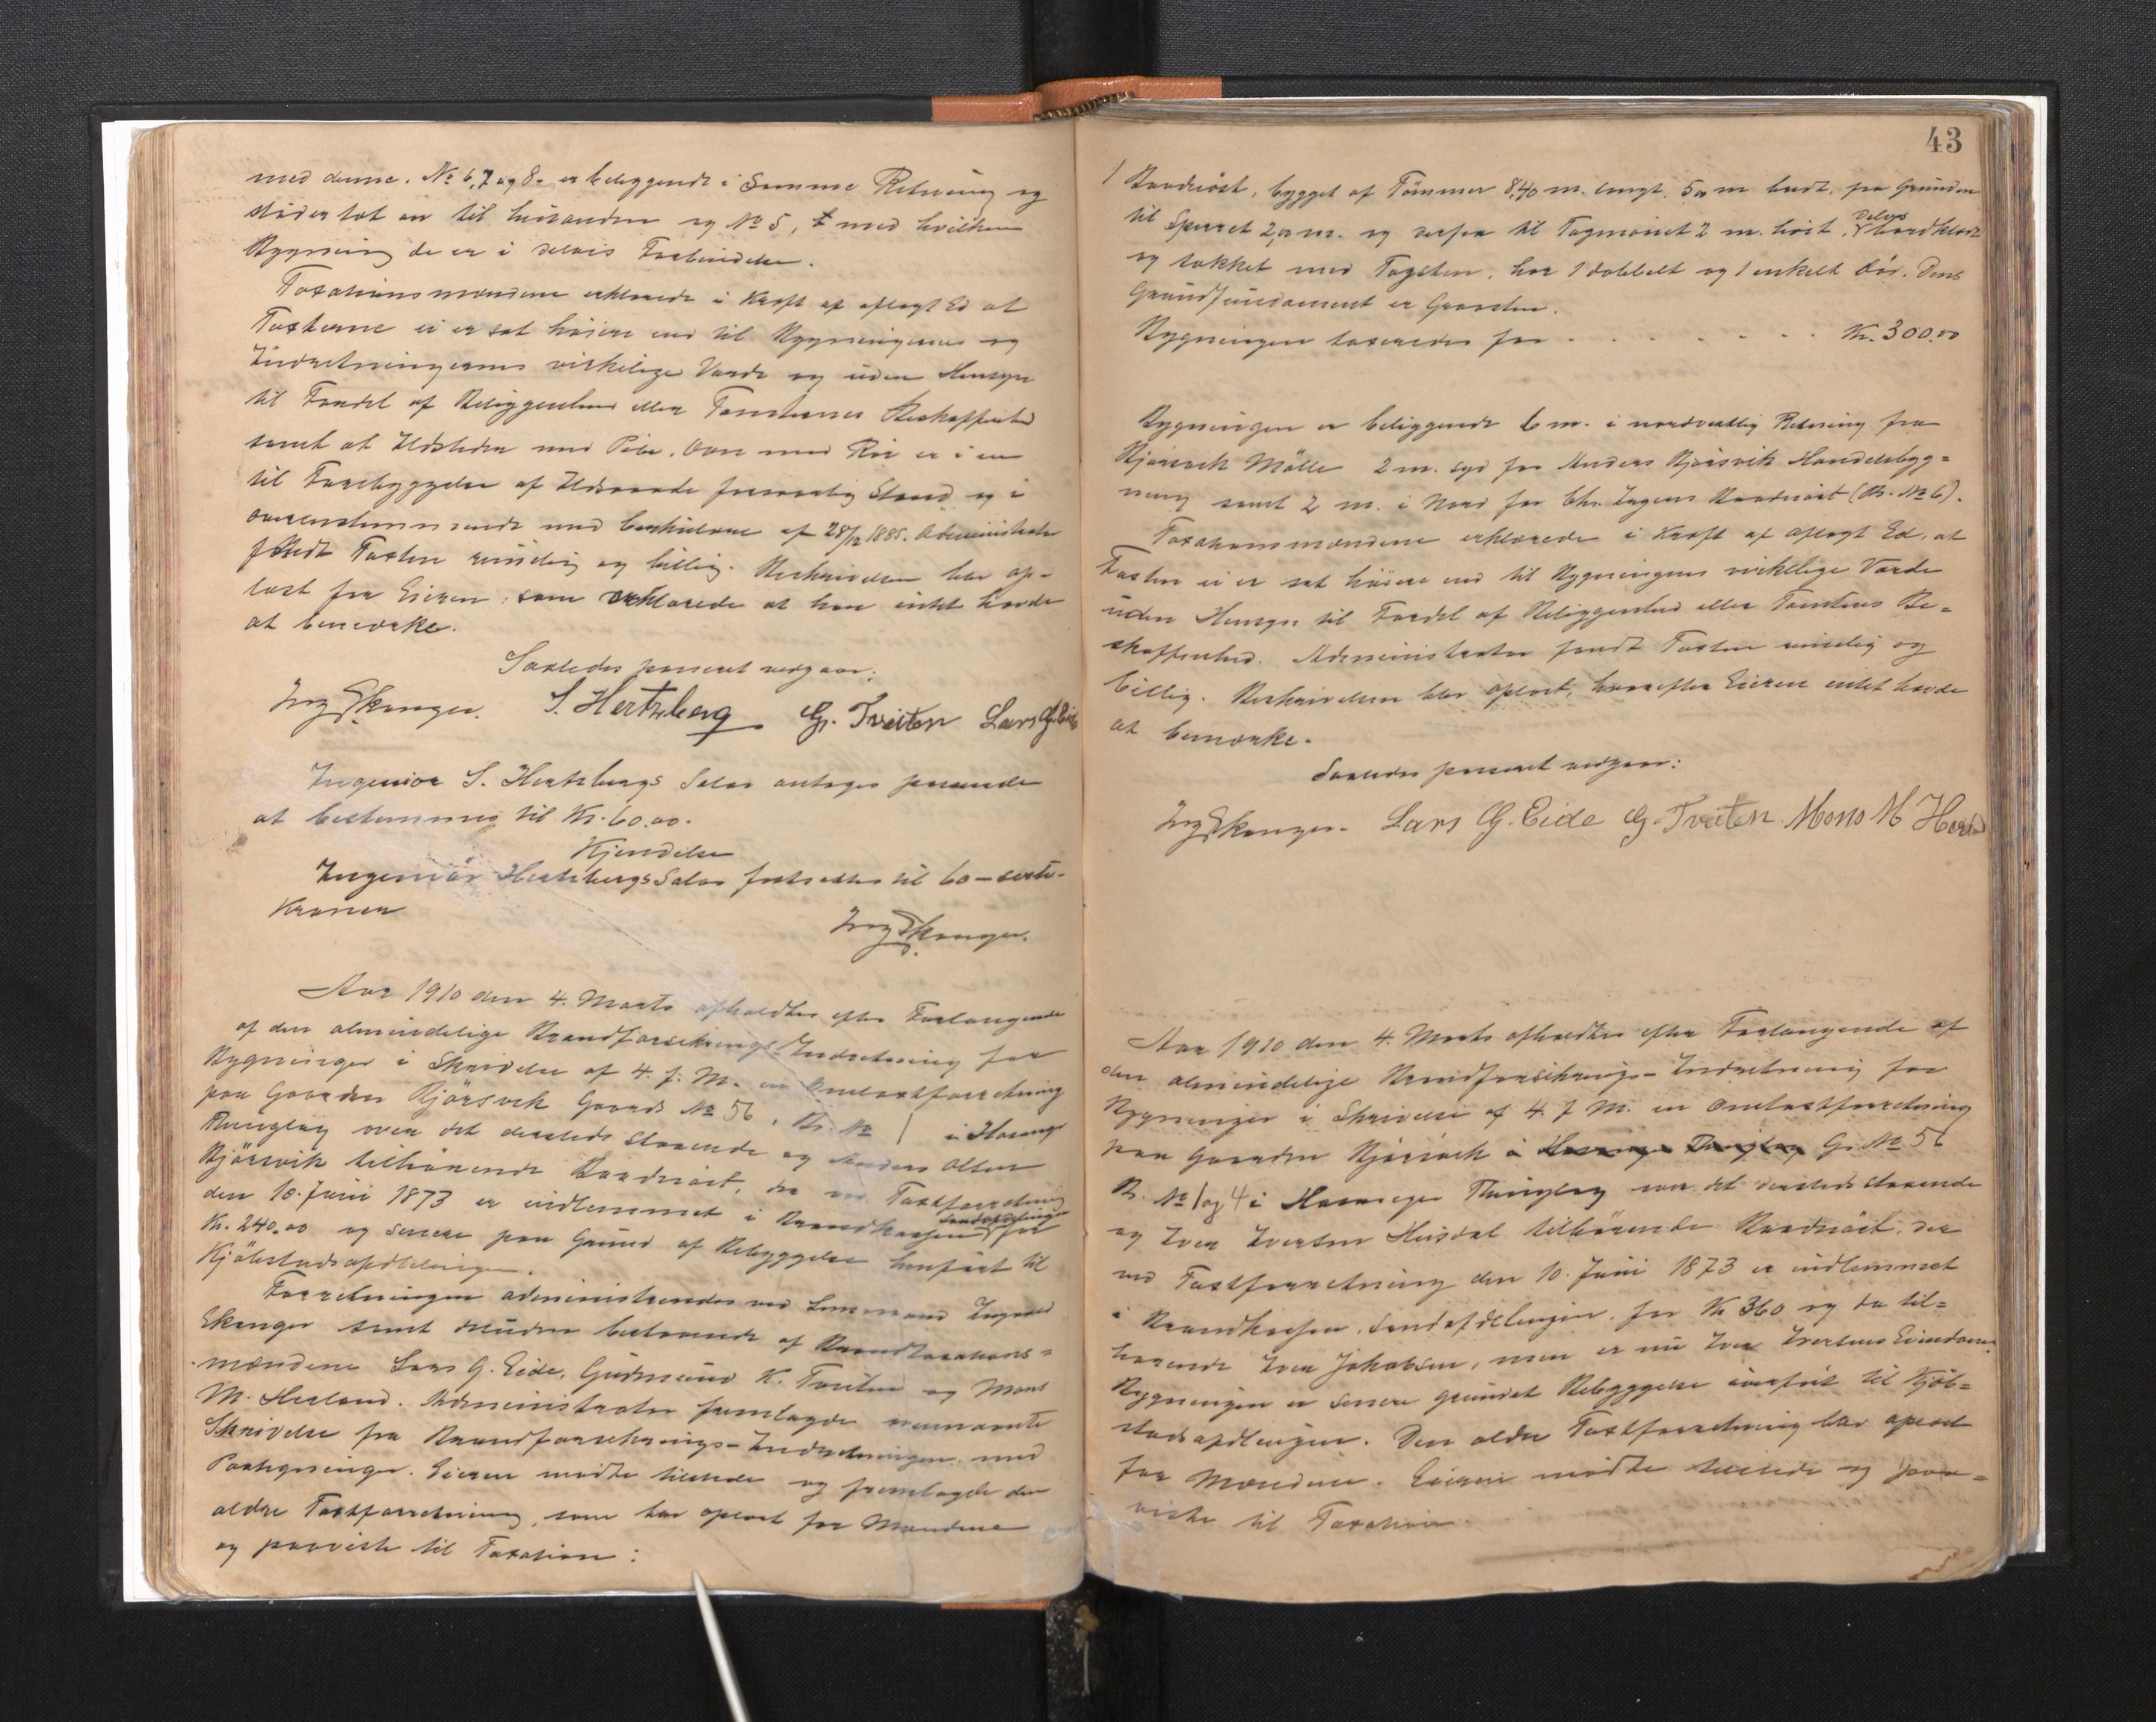 med denne. No 6, 7 og 8 er beliggende i Samme Retning og
stöder tæt an til hinanden og No 5, med hvilken
Bygning de er i delvis Forbindelse.
Taxationsmændene erklærede i Kraft af aflagt Ed at
Taxterne ei er sat höiere end til Bygningernes og
Indretningernes virkelige Værdi og uden Hensyn
til Fordel af Beliggenhed eller Tomternes Beskaffenhed
samt at Ildsteder med Pibe, Ovn med Rör er i en
til Forebyggelse af Ildsvaade forsvarlig Stand og i
overensstemmende med Lovens af 28/12 1885. Administrator
fandt Taxten rimelig og billig. Beskrivelsen blev op-
læst for Eieren, som erklærede at han intet havde
at bemærke.
Saaledes passeret vedgaar:
Ing Ekanger. S. Hertzberg G. Tveiten Lars G. Eide
Ingeniör S. Hertzbergs Salær antages passende
at bestemmes til Kr. 60.00.
Kjendelse
Ingeniör Hertzbergs Salær fastsættes til 60 – sexti-
Kroner
Ing Ekanger.
Aar 1910 den 4. Marts afholdtes efter Forlangende
af den almindelige Brandforsikrings-Indretning for
Bygninger i Skrivelse af 4. f. M. en Omtaxtforretning
paa Gaarden Bjørsvik Gaards No 56, Br. No 1 i Hosanger
Thinglag over det dersteds staaende og Anders Olsen
Bjørsvik tilhörende Baadnöst, der ved Taxtforretning
den 10. Juni 1873 er indlemmet i Brandkassens Landafdelingen for
Kr. 240.00 og senere paa Grund af Bebyggelse henfört til
Kjöbstadsafdelingen.
Forretningen administreredes ved Lensmand Ingvald
Ekanger samt Mænd bestaaende af Brandtaxations-
mændene Lars G. Eide, Gudmund K. Tveiten og Mons
M. Herland. Administrator fremlagde ovennævnte
Skrivelse fra Brandforsikrings-Indretningen med
Paategninger. Eieren mödte tilstede og fremlagde den
ældre Taxtforretning, som blev oplæst for Mændene
og paaviste til Taxation:
43
1 Baadnöst, bygget af Tömmer 8,40 m. langt, 5,0 m bredt, fra Grunden
til Sperret 2,0 m. og derfra til Tagmönet 2 m. höit, delvis bordklædt
og takket med Tagsten, har 1 dobbelt og 1 enkelt Dör. Dens
Grundfundament er Graasten.
Bygningen taxeredes for . . . . . . . . Kr. 300.00
Bygningen er beliggende 6 m. i nordvestlig Retning fra
Bjørsvik Mölle 2 m. syd for Anders Bjørsvik Handelsbyg-
ning samt 2 m. i Nord for Chr. Baadnöst (B. No 6).
Taxationsmændene erklærede i Kraft af aflagt Ed, at
Taxten ei er sat höiere end til Bygningens virkelige Værdi
uden Hensyn til Fordel af Beliggenhed eller Tomtens Be-
skaffenhed. Administrator fandt Taxten rimelig og
billig. Beskrivelsen blev oplæst, hvorefter Eieren intet havde
at bemærke.
Saaledes passeret vedgaar:
Ing Ekanger. Lars G. Eide G. Tveiten. Mons M Herland
Aar 1910 den 4. Marts afholdtes efter Forlangende af
den almindelige Brandforsikrings-Indretning for
Bygninger i Skrivelse af 4. f M. en Omtaxtforretning
paa Gaarden Bjørsvik i Hosanger Thinglag G. No 56
B. No 1 og 4 i Hosanger Thinglag over det dersteds staaende
og Iver Iversen Husdal tilhörende Baadnöst, der
ved Taxtforretning den 10. Juni 1873 er indlemmet
i Brandkassen, Landafdelingen, for Kr 360 og da til-
hørende Iver Jakobsen, men er nu Iver Iversens Eiendom.
Bygningen er senere grundet Bebyggelse overfört til Kjöb-
stadsafdelingen. Den ældre Taxtforretning blev oplæst
for Mændene. Eieren mödte tilstede og paa-
viste til Taxation.